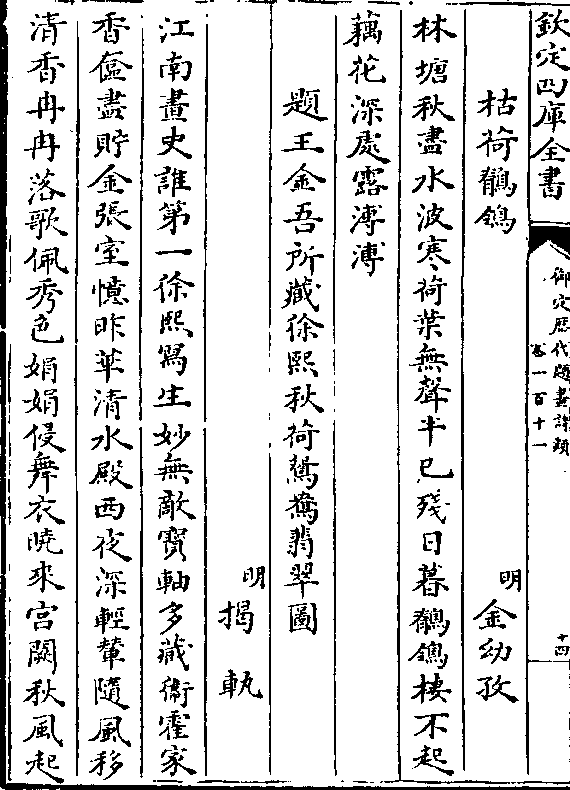 欽定四庫全書
御定歷代題畫詩類
卷一百十一
十四
枯荷鶺鴒
明 金幼孜
林塘秋盡水波寒荷葉無聲半已殘日暮鶺鴒棲不起
藕花深處露漙漙
題王金吾所藏徐熙秋荷鴛鴦翡翠圖
明 揭軌
江南畫史誰第一徐熙寫生妙無敵寶軸多藏衞霍家
香奩盡貯金張室憶昨華清水殿西夜深輕輦隨風移
清香冉冉落歌佩秀色娟娟侵舞衣曉來宮闕秋風起